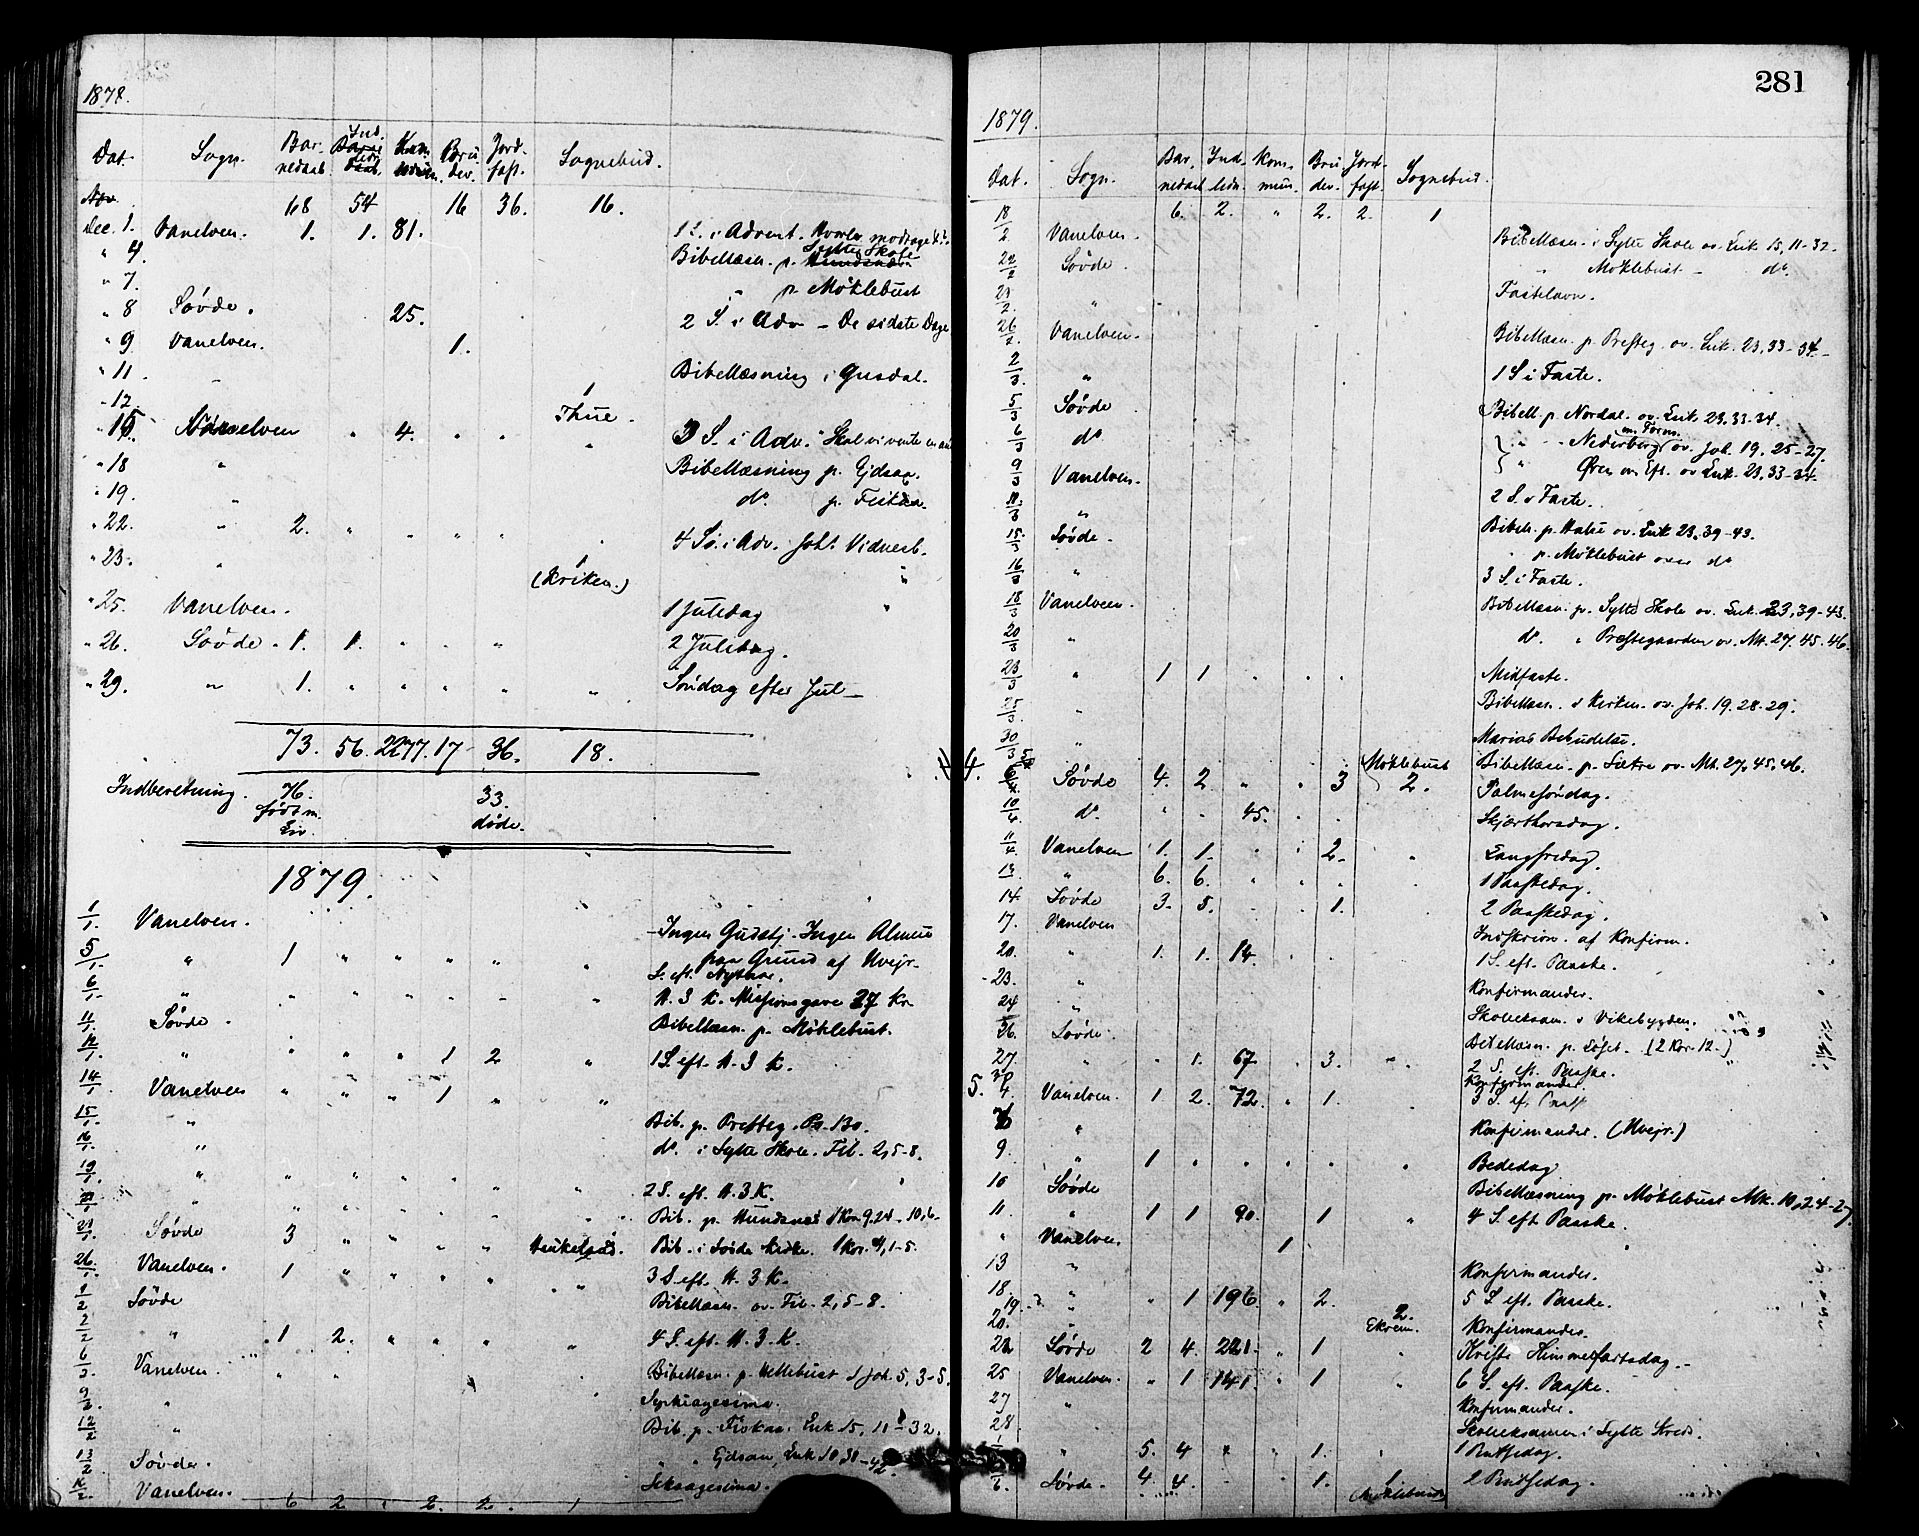 1878.
Dat. Sogn. Bar- nedaab. Ind. ledn. Kom- mun. Bru- dev. Jord- fæst. Sognebud.
Nov. 68 54 16 36. 16.
Dec. 1. Vanelven. 1. 1. 81. 1 S. i Advent.
" 4. Bibellæsn. p. Sylte Skole
" 7. " p. Møklebust
" 8 Søvde. 25. 2 S. i Adv - De sidste Dage
" 9 Vanelven. 1.
" 11 Bibellæsning i Gusdal.
" 12. 1 Thue.
" 15. Vanelven " 4. " " " 3 S. i Adv. Skal vi vente en an
" 18 " Bibellæsning p. Ejdsaa.
" 19. " do p.
" 22. " 2. " " " " 4 S. i Adv. Joh. Vidnesb.
" 23. " 1 (Kriken.) "
" 25. Vanelven. 1 Juledag "
" 26. Søvde 1. 1. " " " 2 Juledag.
" 29. " 1. " " " " " Søndag efter Jul -
73. 56. 2277. 17 36. 18.
Indberetning. 76. født m. Liv. 33. døde.
1879.
1/1. Vanelven. Ingen Gudstj. Ingen Almeu
5/1. " 1 " " " " " paa Grund af Uvejr.
S. eft. Nytaar.
6/1. " " " " " " " H. 3 K. Missionsgave 27 Kr
11/1. Søvde. Bibellæsn. p. Møklebust.
12/1. " " " " 1 2 " 1 S. eft. H. 3 K.
14/1. Vanelven " " " 1 " "
15/1. " Bib. p. Præsteg. Ps. 130.
16/1. " do. i Sylte Skole. Fil. 2,5-8.
19/1. " " " " " " " 2 S. eft. H. 3 K.
" Bib. p. Hundsnes 1 Kor 9,24-10,6-
21/1. Søvde 3 " " " " Bib. i Søvde Kirke. 1 Kor. 4,1-5.
26/1. Vanelven. 1 " " " " " 3 S. eft. H. 3 K.
1/2 Søvde Bibellæsn. ov. Fil. 2,5-8.
2/2 " 1 2. " " " " 4 S. eft. H. 3. K.
6/2. Vanelven. " " Bibellæsn. p. Hellebust 1 Joh. 5, 3-5.
9/2. " Septuagesima.
12/2 " Bib. p. Luk 15, 11-32.
13/2 Søvde. " " Ejdsaa, Luk 10 38-42.
Vanelven. Seksagesima.
6 2 " 2. 2. 1
281
1879.
Dat. Sogn. Bar. nedaab Ind. ledn. Kom- mun. Bru- dev. Jord- fæst. Sognebud.
6. 2. " 2. 2. 1
18/2. Vanelven. Bibellæsn. i Sylte Skole ov. Luk 15, 11-32.
22/2 Søvde. " Møklebust - do.
23/2. " Fastelavn.
26/2. Vanelven. Bibellæsn. p. Præsteg. ov. Luk. 23,33-34-
2/3. " 1 S i Faste.
5/3 Søvde Bibell. p. Nordal. ov. Luk 23.33-34.
6/3 do " " Nederberg m. Form. ov. Joh. 19. 25-27.
" Øren om Eft. ov Luk. 23,33-34.
9/3 Vanelven. 2 S. i Faste.
11/3 " Bibell. p. ov. Luk 23,39-43.
15/3 Søvde. " p. Møklebust over do
16/3 " 3 S. i Faste.
18/3 Vanelven. Bibellæsn. p. Sylte Skole ov. Luk. 23,39-43.
20/3 " do. " Præstegaarden ov. Mt. 27. 45.46.
23/3 " 1 1 " " " Midfaste.
25/3. " Bibellæsn. i Kirken. ov. Joh. 19.28-29.
30/3 " Marias Bebudelse.
4. Bibellæsn. p. Sætre ov. Mt. 27. 45.46.
6/4 Søvde 4. 2 " " 3 Møklebust 2. Palmesøndag.
10/4 do. " " 45. " " Skjærthorsdag.
11/4. Vanelven 1. 1. " " 2. " Langfredag.
13. " 6. 6. " " " 1 Paaskedag.
14. Søvde 3. 5. " 1. 2 Paaskedag.
17. Vanelven Indskrivn. af Konfirm.
20. " 1. 1. 14. " " 1 S. eft. Paaske.
23. " Konfirmander.
24 Skoleeksam. i Vikebygden.
26. Søvde. Bibellæsn. p. Løset. (2 Kor. 12.)
27. " " 1. 67. " 3. " 2 S. eft. Paaske.
30 Konfirmander
5. 4. Vanelven. 1 2. 72. " 1. " 3 S. ef. Paaske
" Konfirmander. (Uvejr.)
9. " 1 " " " " " Bededag
10 Søvde Bibellæsning p. Møklebust Mk. 10, 24-27.
11. " 1 1 90. 1 " 4 S. eft Paaske.
" Vanelven. 1
13 " Konfirmander.
18. " " 1 196. " 2. 5 S. eft. Paaske.
19. "
20. " 2. Ekrem. Konfirmander.
22 Søvde 2 4. 221. " 1 " Kristi Himmelfartsdag.
25 Vanelven. " 1 141. " 1 " 6 S. eft. Paaske.
27 " Konfirmander.
28 Skoleeksamen i Sylte Kreds.
" 5. 4 " " 1. 1 Pintsedag.
Søvde. 4. 4. " " 1. 1 Møklebust 2 Pintsedag.